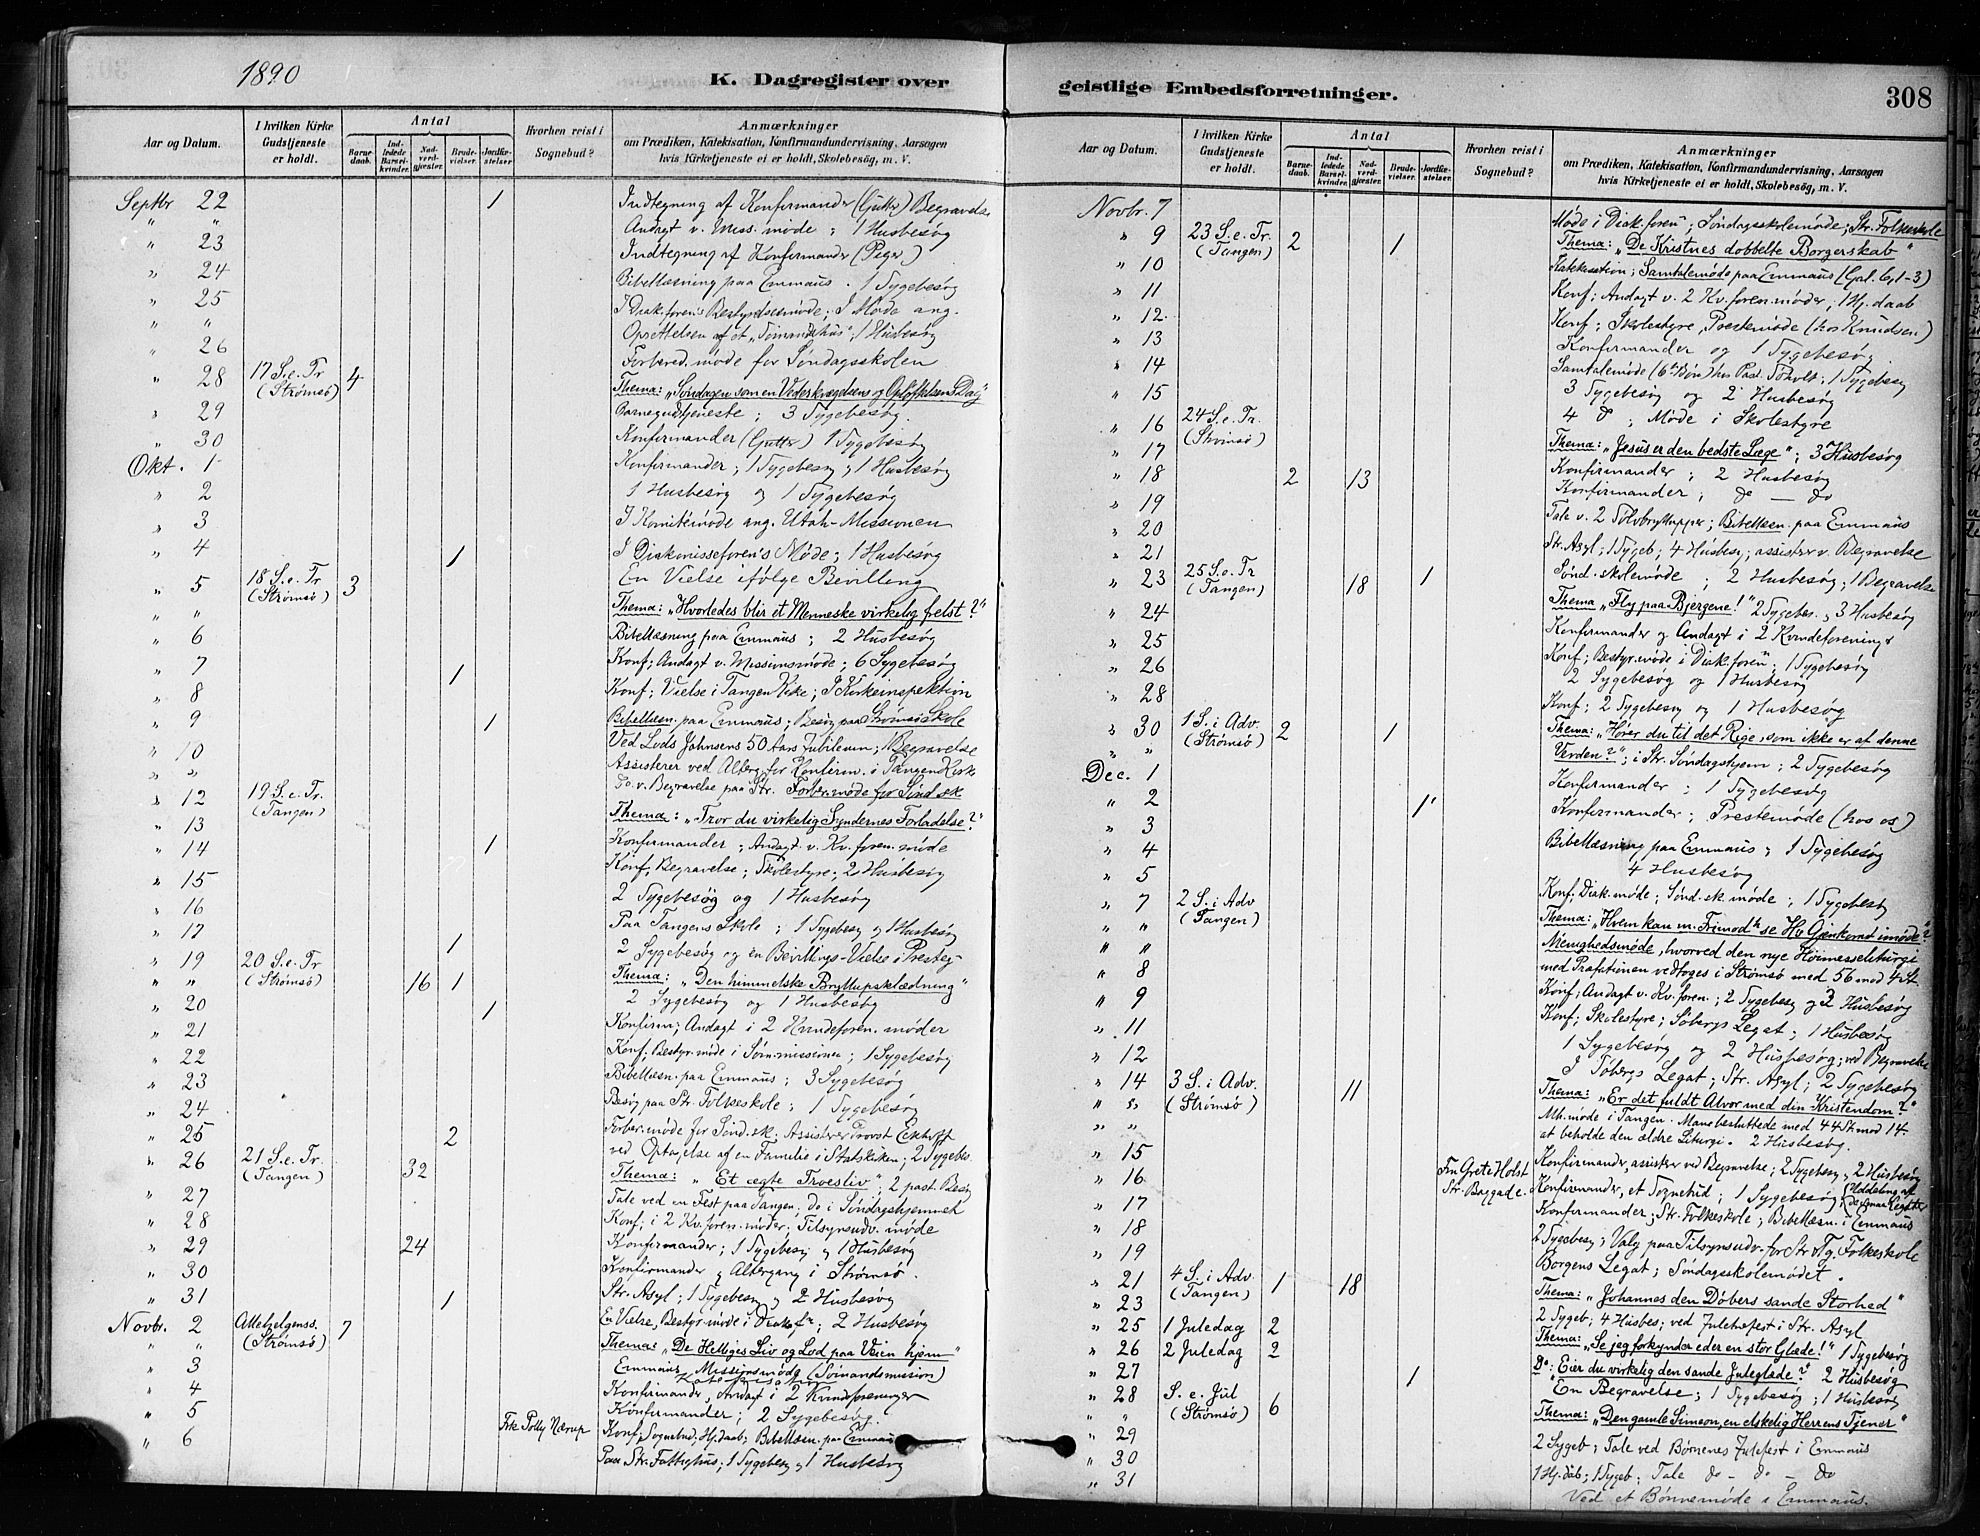 1890
K. Dagregister over
geistlige Embedsforretninger.
308
Aar og Datum.
I hvilken Kirke Gudstjeneste er holdt.
Antal
Barnedaab.
Indledede Barselkvinder.
Nadverdgjæster.
Brudevielser.
Jordfæstelser.
Hvorhen reist i Sognebud?
Anmærkninger
om Prædiken, Katekisation, Konfirmandundervisning, Aarsagen
hvis Kirketjeneste ei er holdt, Skolebesøg, m. V.
Septbr 22 1 Indtegning af Konfirmander (Gutter) Begravelse
" " Andagt v. Miss. møde ; 1 Husbesøg
" 23 Indtegning af Konfirmander (Piger)
" 24 Bibellæsning paa Emmaus. 1 Sygebesøg
" 25 I Diak.foren's Bestyrelsesmøde; I Møde ang.
" " Oprettelsen af et „Sømandshus"; 1 Husbesøg
" 26 Forbered. møde for Søndagsskolen
" 28 17 S. e. Tr (Strømsø) 4 Thema: „Søndagen som en Vederkvægelsens og Opløftelsens Dag"
" 29 Barnegudstjeneste ; 3 Sygebesøg
" 30 Konfirmander (Gutter) 1 Sygebesøg
Okt. 1 Konfirmander ; 1 Sygebesøg og 1 Husbesøg
" 2 1 Husbesøg og 1 Sygebesøg
" 3 I Komitemøde ang. Utah-Missionen
" 4 1 I Diakonisseforen's Møde ; 1 Husbesøg
En Vielse ifølge Bevilling
" 5 18 S. e. Tr (Strømsø) 3 Thema: „Hvorledes blir et Menneske virkelig frelst?"
" " Bibellæsning paa Emmaus ; 2 Husbesøg
" 6 Konf; Andagt v. Missionsmøde ; 6 Sygebesøg
" 7 1 Konf; Vielse i Tangen Kirke ; I Kirkeinspektion
" 8 Bibellæsn. paa Emmaus ; Besøg paa Strømsø Skole
" 9 1 Ved Lods Johnsens 50 Aars Jubilæum ; 1 Begravelse
" 10 Assisterer ved Alterg. for Konfirm. i Tangen Kirke
" " Do. v. Begravelse paa Str. Forber. møde for Sønd sk
" 12 19 S. e. Tr. (Tangen) Thema: „Tror du virkelig Syndernes Forladelse?"
" 13 Konfirmander ; Andagt v. Kv. foren. møde
" 14 1 Konf; Begravelse ; Skolestyre ; 2 Husbesøg
" 15 2 Sygebesøg og 1 Husbesøg
" 16 Paa Tangens Skole ; 1 Sygebesøg og 1 Husbesøg
" 17 1 2 Sygebesøg og en Bevillings-Vielse i Presteg-
" 19 20 S. e. Tr (Strømsø) 16 1 Thema: „Den himmelske Bryllupsklædning"
" " 2 Sygebesøg og 1 Husbesøg
" 20 1 Konfirm; Andagt i 2 Kvindeforen. møder
" 21 Konf; Bestyr. møde i Søm. missionen ; 1 Sygebesøg
" 22 Bibellæsn. paa Emmaus ; 3 Sygebesøg
" 23 Besøg paa Str. Folkeskole ; 1 Sygebesøg
" 24 Forber. møde for Sønd. sk; Assisterer Provst Eckhoff
" 25 2 ved Optagelse af en Familie i Statskirken; 2 Sygebes.
" 26 21 S. e. Tr. (Tangen) 32 Thema: „Et ægte Troesliv" ; 2 past. Besøg
" 27 Tale ved en Fest paa Tangen, do i Søndagshjemmet
" 28 Konf; i 2 Kv. foren. møder. Tilsynsudv. møde
" 29 24 Konfirmander ; 1 Sygebesøg og 1 Husbesøg
" 30 Konfirmander og Altergang i Strømsø.
" 31 1 Str. Asyl ; 1 Sygebesøg og 2 Husbesøg
En Vielse, Bestyr. møde i Diak. fr ; 2 Husbesøg
Novbr. 2 Allehelgenss. (Strømsø) 7 Thema: „De Helliges Liv og Lod paa Veien hjem"
" " Emmaus, Missionsmøde (Sømandsmission)
" 3 Katekisation
" 4 Konfirmander, Andagt i 2 Kvindeforeninger
" 5 Konfirmander ; 2 Sygebesøg.
" 6 Frk Polly Nærup Konf; Sognebud; Hj. daab; Bibellæsn. paa Emmaus
Paa Str. Fattighus ; 1 Sygebesøg og 1 Husbesøg
Aar og Datum.
I hvilken Kirke Gudstjeneste er holdt.
Antal
Barnedaab.
Indledede Barselkvinder.
Nadverdgjæster.
Brudevielser.
Jordfæstelser.
Hvorhen reist i Sognebud?
Anmærkninger
om Prædiken, Katekisation, Konfirmandundervisning, Aarsagen
hvis Kirketjeneste ei er holdt, Skolebesøg, m. V.
Novbr. 7 Møde i Diak. foren ; Søndagsskolemøde ; Str. Folkeskole
" 9 23 S. e. Tr. (Tangen) 2 1 Thema: „De Kristnes dobbelte Borgerskab"
" 10 Katekisation; Samtalemøde paa Emmaus (Gal. 6, 1-3)
" 11 Konf; Andagt v. 2 Kv. foren. møder, 1 Hj. daab
" 12 Konf; Skolestyre, Prestemøde (hos Knudsen)
" 13 Konfirmander og 1 Sygebesøg.
" 14 Samtalemøde (6te Bøn) hos Past. Toholt; 1 Sygebesøg
" 15 3 Sygebesøg og 2 Husbesøg
4 do ; Møde i Skolestyre
" 16 24 S. e. Tr. (Strømsø) Thema: „Jesus er den bedste Læge" ; 3 Husbesøg
" 17 Konfirmander ; 2 Husbesøg
" 18 2 13 Konfirmander ; do — do
" 19 Tale v. 2 Sølvbryllupper ; Bibellæsn. paa Emmaus
" 20 Str. Asyl ; 1 Sygeb ; 4 Husbesøg ; assisterer v. Begravelse
" 21 Sønd. skolemøde ; 2 Husbesøg ; 1 Begravelse
" 23 25 S. e. Tr (Tangen) 18 1 Thema „Fly paa Bjergene!" 2 Sygebes. og 3 Husbesøg
" 24 Konfirmander og Andagt i 2 Kvindeforeninger
" 25 Konf; Bestyr. møde i Diak. foren ; 1 Sygebesøg
" 26 2 Sygebesøg og 1 Husbesøg
" 28 Konf; 2 Sygebesøg og 1 Husbesøg
" 30 1 S. i Adv. (Strømsø) 2 1 Thema: „Hører du til det Rige, som ikke er af denne
" " Verden?" ; i Str. Søndagshjem ; 2 Sygebesøg
Dec. 1 Konfirmander ; 1 Sygebesøg
" 2 1 Konfirmander ; Prestemøde (hos os)
" 3 Bibellæsning paa Emmaus ; 1 Sygebesøg
" 4 4 Husbesøg
" 5 Konf; Diak. møde ; Sønd. sk. møde ; 1 Sygebesøg
" 7 2 S. i Adv (Tangen) Thema: „Hvem kan m. Frimodh se Hs Gjenkomst imøde?"
" " Menighedsmøde, hvorved den nye Høimesseliturgi
" " med Præfationen vedtoges i Strømsø med 56 mod 4 St.
" 8 Konf; Andagt v. Kv. foren. ; 2 Sygebesøg og 2 Husbesøg
" 9 Konf; Skolestyre ; Søbergs Legat ; 1 Husbesøg
" 11 1 Sygebesøg og 2 Husbesøg ; ved Begravelse
" 12 I Søbergs Legat ; Str. Asyl ; 2 Sygebesøg
" 14 3 S. i Adv. (Strømsø) 11 Thema: „Er det fuldt Alvor med din Kristendom?"
" " Mh. møde i Tangen. Man besluttede med 44 St. mod 14
" " at beholde den ældre Liturgi. 2 Husbesøg.
" 15 Konfirmander, assisterer ved Begravelse ; 2 Sygebesøg, 2 Husbesøg
" 16 Fru Grete Holst Str. Baggade. Konfirmander, et Sognebud ; 1 Sygebesøg (Uddeling af Legater
" 17 Konfirmander ; Str. Folkeskole ; Bibellæsn. i Emmaus
" 18 2 Sygebesøg ; Valg paa Tilsynsudv. for Str og Tg. Folkeskole
" 19 Borgens Legat ; Søndagsskolemødet.
" 21 4 S. i Adv (Tangen) 1 18 Thema: „Johannes den Døbers sande Storhed"
" 23 2 Sygeb; 4 Husbes ; ved Juletrefest i Str. Asyl
" 25 1 Juledag 2 Thema: „Se jeg forkynder eder en stor Glæde!" 1 Sygebesøg
" 26 2 Juledag 2 Do: Eier du virkelig den sande Juleglæde?" 2 Husbesøg
" 27 1 En Begravelse ; 1 Sygebesøg ; 1 Husbesøg
" 28 S. e. Jul (Strømsø) 6 Thema: „Den gamle Simeon, en elskelig Herrens Tjener"
" "
" 29 2 Sygeb ; Tale ved Børnenes Julefest i Emmaus
" 30 1 Hj. dåb ; 1 Sygeb ; Tale do — do — do
" 31 Ved et Bønnemøde i Emmaus.